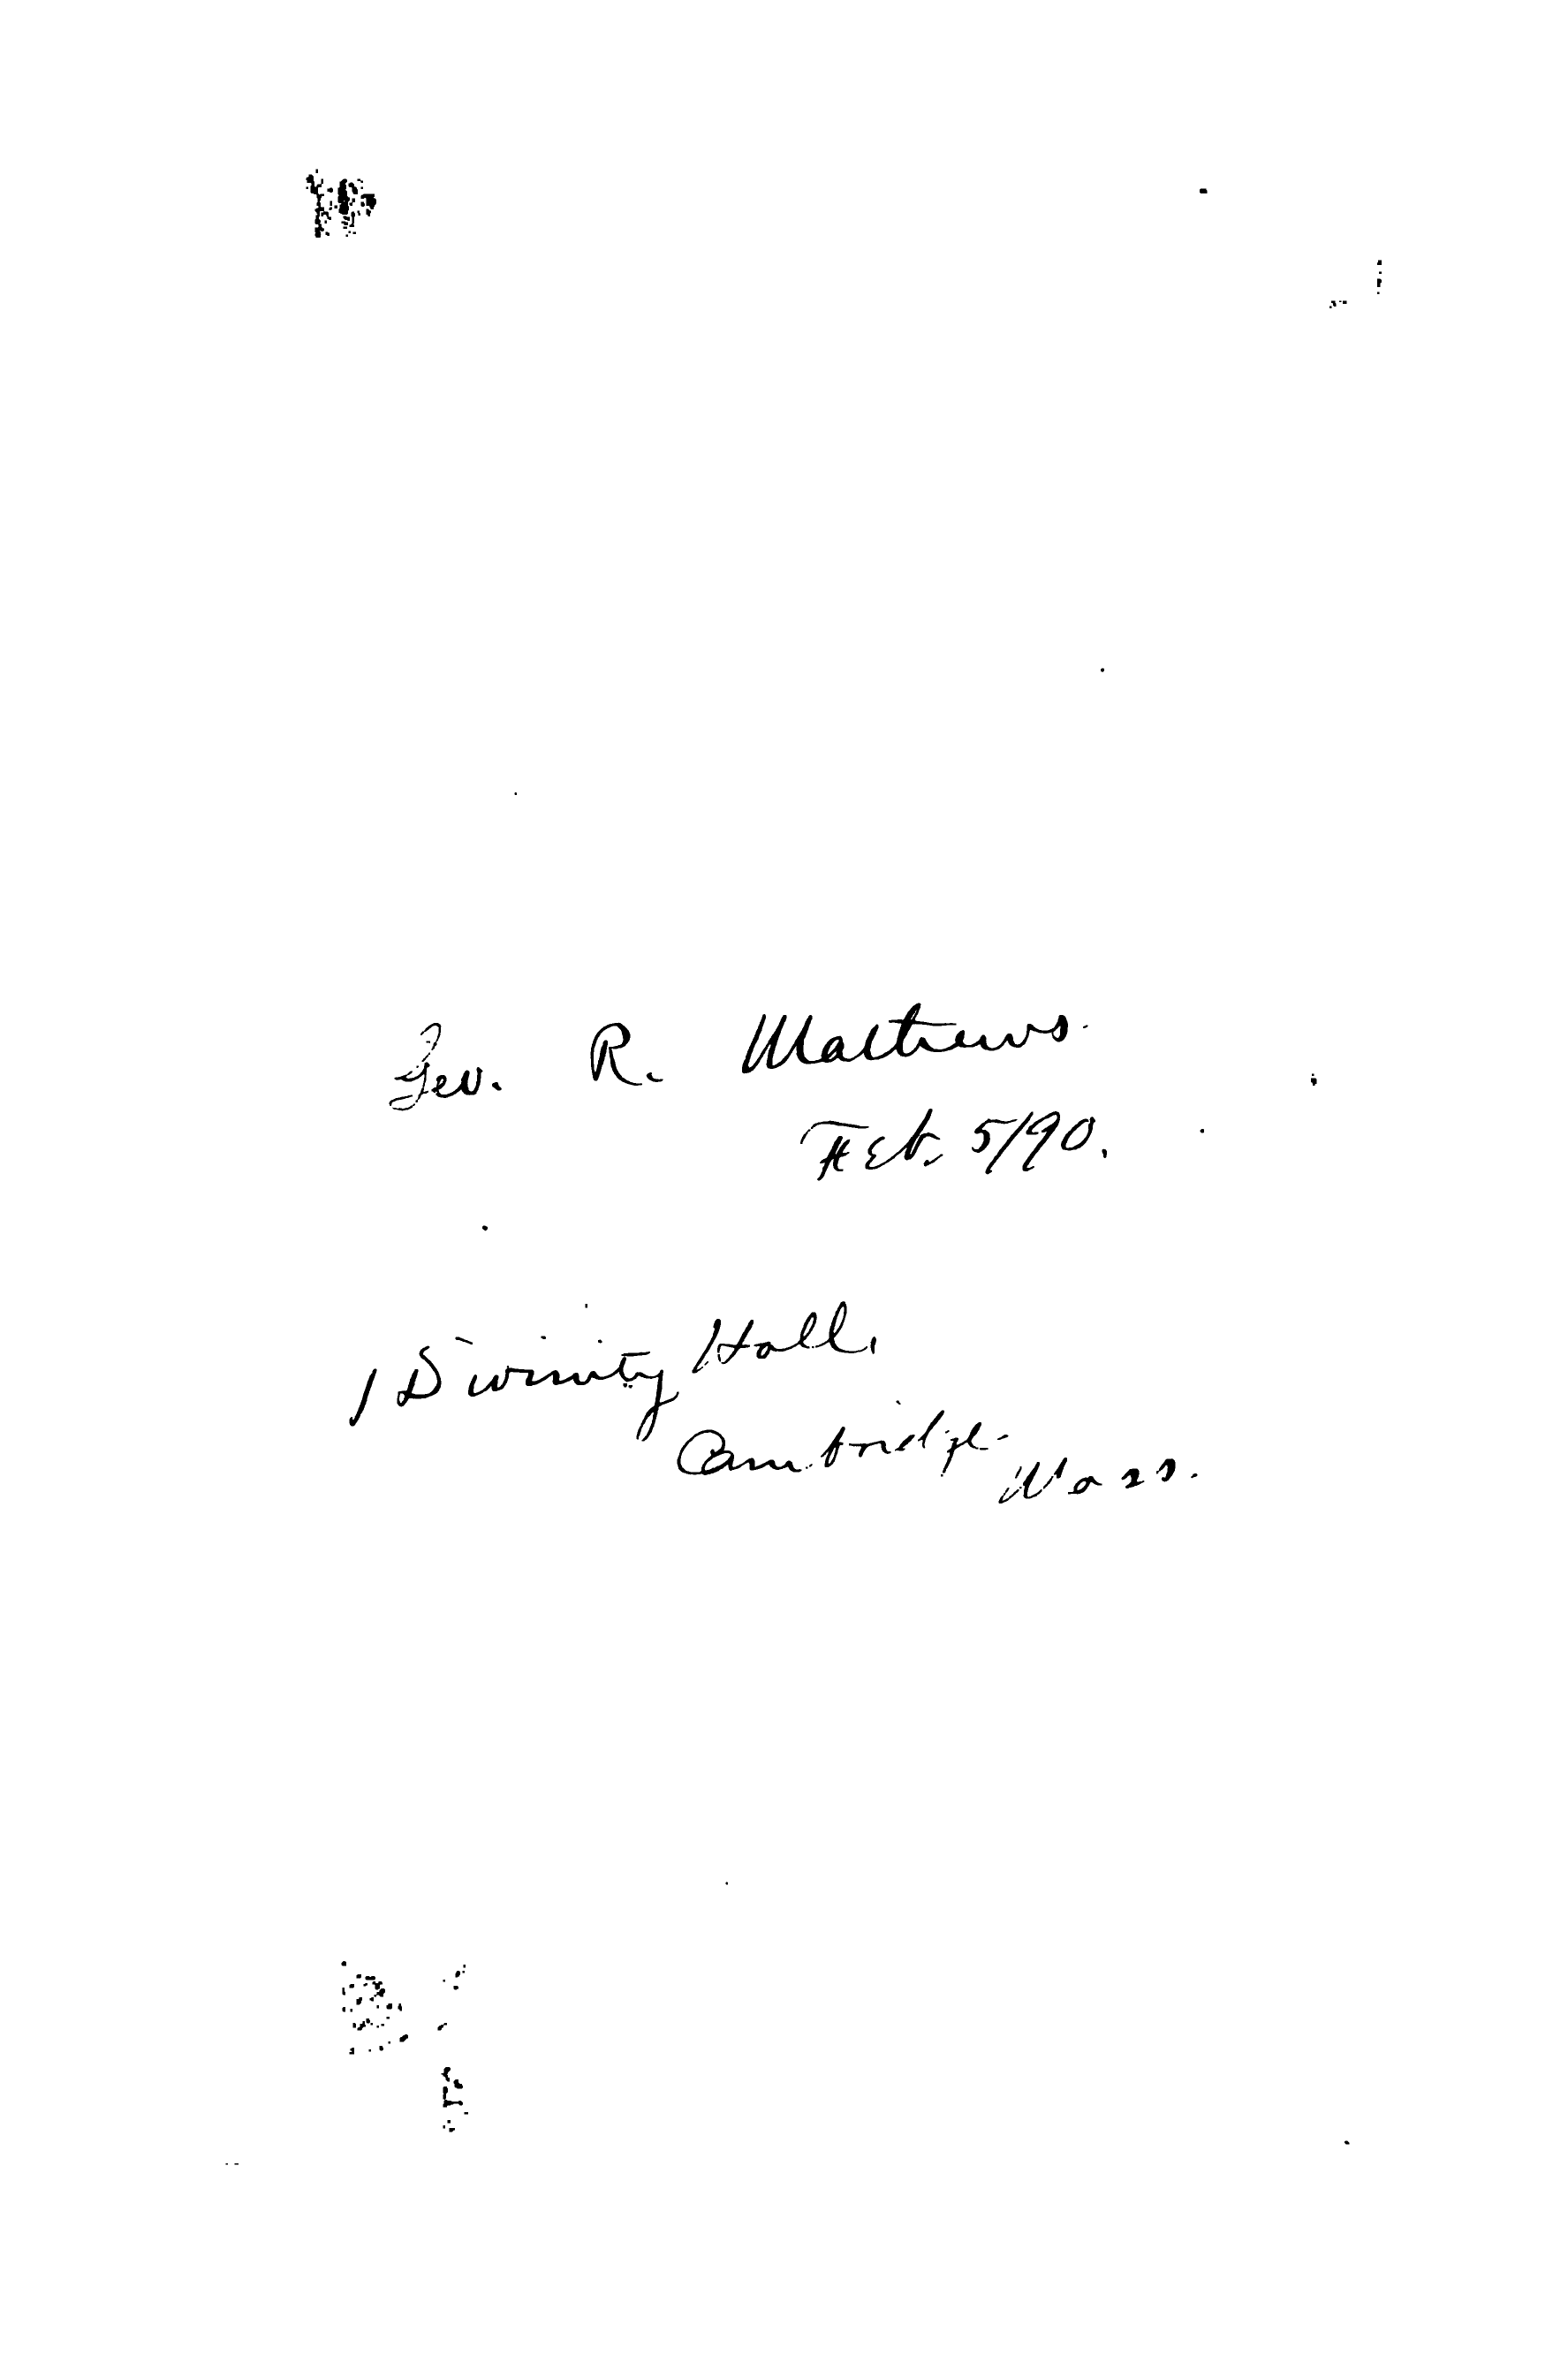 Geo. R. Matthews.
Feb. 5/90.
1 Divinity Hall,
Cambridge
Mass.